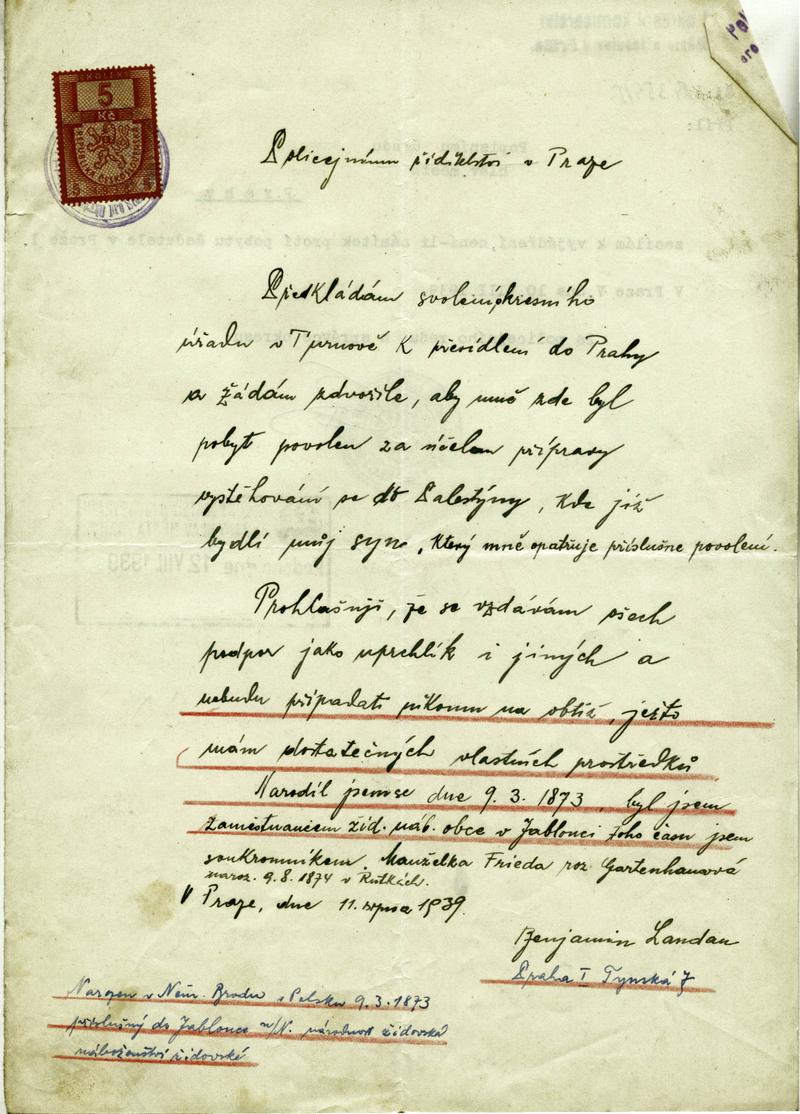 KOLEK
5
Kč
Policejnímu ředitelství v Praze
Předkládám svolení okresního
úřadu v Turnově k přesídlení do Prahy
a žádám zdvořile, aby mně zde byl
pobyt povolen za účelem přípravy
vystěhování se do Palestýny, kde již
bydlí můj syn, který mně opatřuje příslušne povolení.
Prohlašuji, že se vzdávám všech
podpor jako uprchlík i jiných a
nebudu připadati nikomu na obtíž, ježto
mám dostatečných vlastních prostředků
Narodil jsem se dne 9. 3. 1873, byl jsem
zaměstnancem žid. náb. obce v Jablonci toho času jsem
soukromníkem. Manželka Frieda roz. Gartenhausová
naroz. 9. 8. 1874 v Rutkách.
V Praze, dne 11. srpna 1939.
Benjamin Landau
Praha I Tynská 7
Narozen v Něm. Brodu v Polsku 9. 3. 1873
příslušný do Jablonce n/N. národnost židovská
náboženství židovské